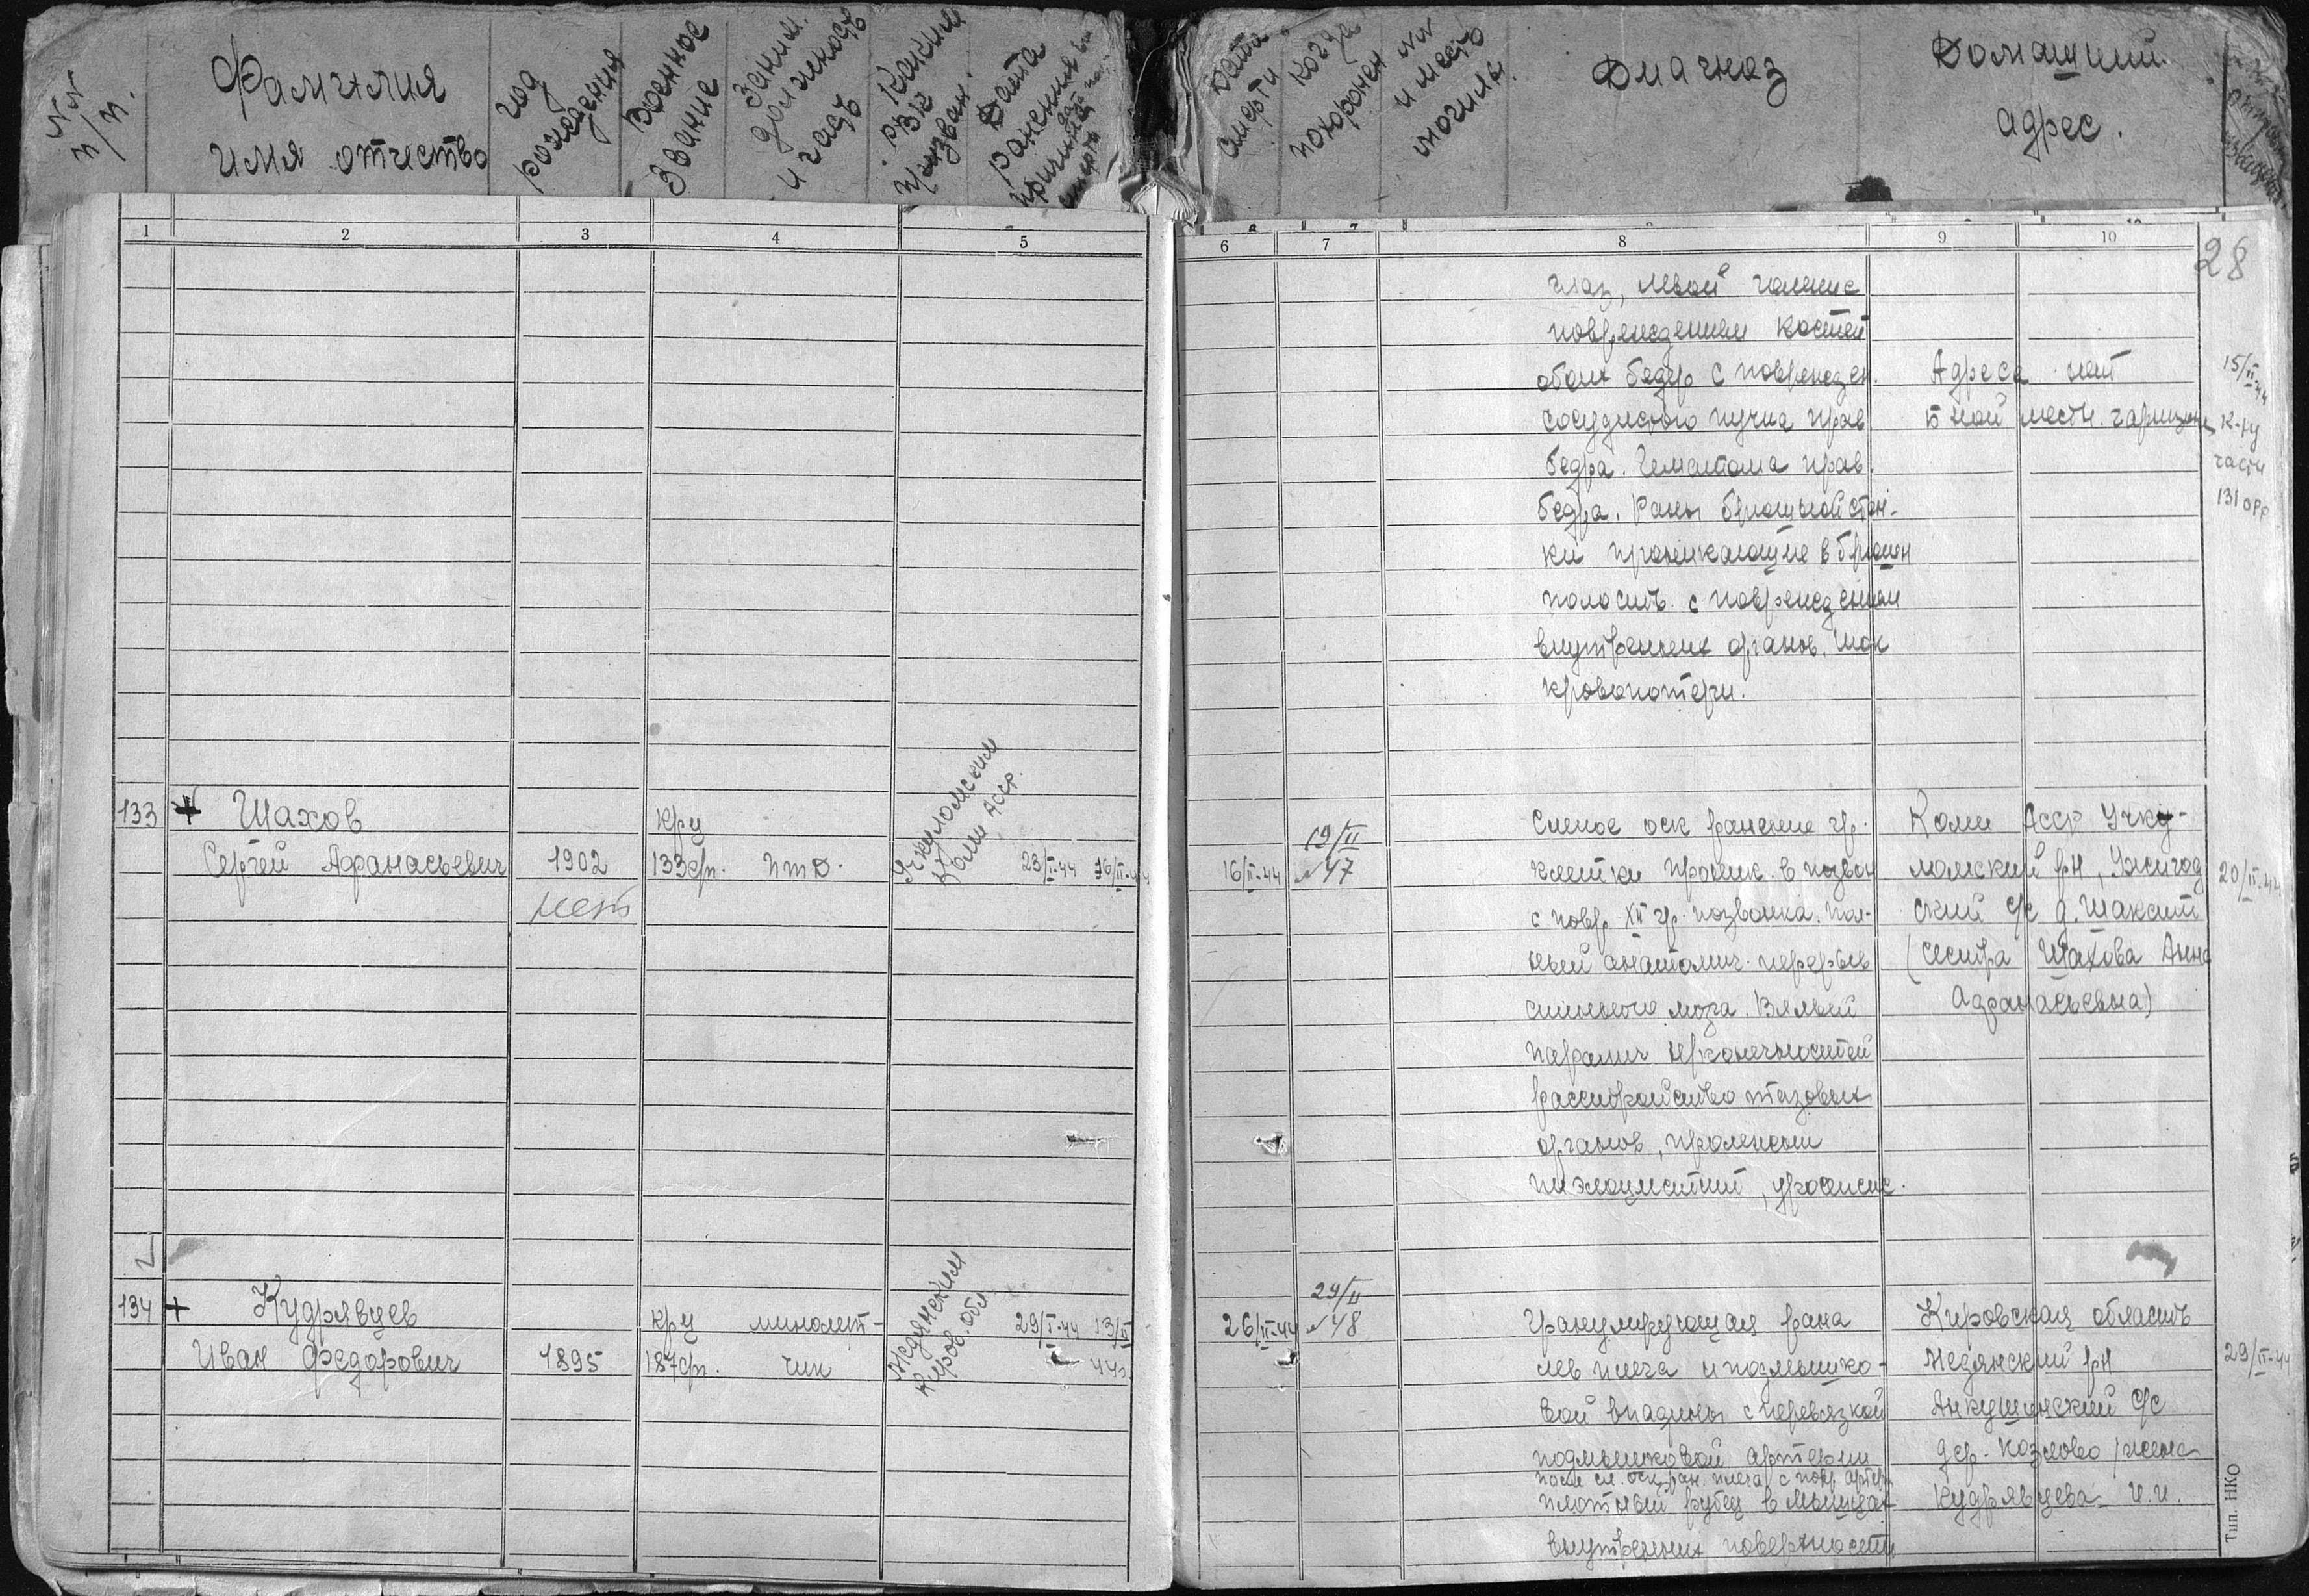 NN п/п.
Фамилия
имя отчество
год рождения
Военное звание
Заним. должность и часть
Каким РВК призван.
Дата ранения
причина смерти
Дата смерти
Когда похоронен
NN и место могилы.
Диагноз
Домашний
адрес.
1 2 3 4 5 6 7 8 9 10
28
глаз, левой голени с
повреждением костей
обоих бедр с поврежден. Адреса нет
сосудистого пучка прав
бедра. Гематома прав.
бедра. Раны брюшной стен-
ки проникающие в брюшн
полость с повреждением
внутренних органов. Шок
кровопотери.
15/II-44
к-ру
части
131 орр
133 + Шахов кр-ц
Сергей Афанасьевич 1902 133 сп. пто. 23/I-44 16/II-44
нет
Усткуломским
Коми АССР
19/II
16/II-44 №47
Слепое оск ранение гр.
клетки проник. в позвон
с повр XII гр. позвонка. Пол-
ный анатомич. перерыв
спинного мозга. Вялый
паралич н/конечностей
расстройство тазовых
органов, пролежни
пиэлоцистит, уросепсис.
Коми АССР Усткуломский
ломский рн, Ужигод
ский с/с д. Шаксит
(сестра Шахова Анна
Афанасьевна)
20/II-44
134 + Кудрявцев кр-ц миномет-
Иван Федорович 1895 187 сп. чик 29/I-44 13/II
44г.
Медянским
Киров. обл
29/II
26/II-44 №48
Гранулирующая рана
лев плеча и подмышко-
вой впадины с перевязкой
подмышковой артерии
после сл. оск. ран. плеча с повр. артер.
плотный рубец в мышцах
внутренних поверхности
Кировская область
Медянский рн
Анкушинский с/с
дер. Козлово /жена
Кудрявцева И.И.
29/II-44
Тип. НКО